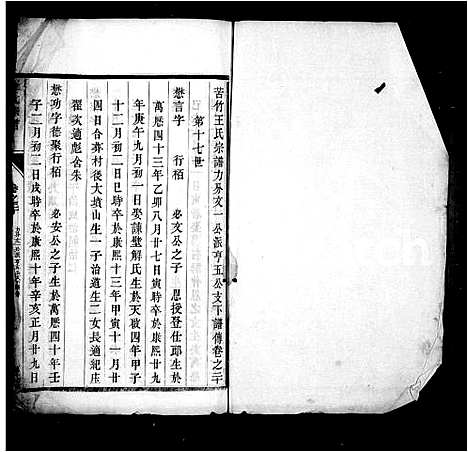 苦竹王氏宗譜力分文一公派亨五公支下譜傳卷之二十
第十七世
懋言字　行栢　必文公之子　恩授登仕郎生於
萬曆四十三年乙卯八月廿七日寅時卒於康熙廿九
年庚午九月初一日娶謙塱解氏生於天啟四年甲子
十二月初二日巳時卒於康熙十三年甲寅十一月廿
四日合葬村後大墳山生一子治道生二女長適紀庄
翟次適彪舍朱
懋功字德聚行栢　必安公之子生於萬曆四十年壬
子二月初二日戌時卒於康熙十年辛亥正月廿九日